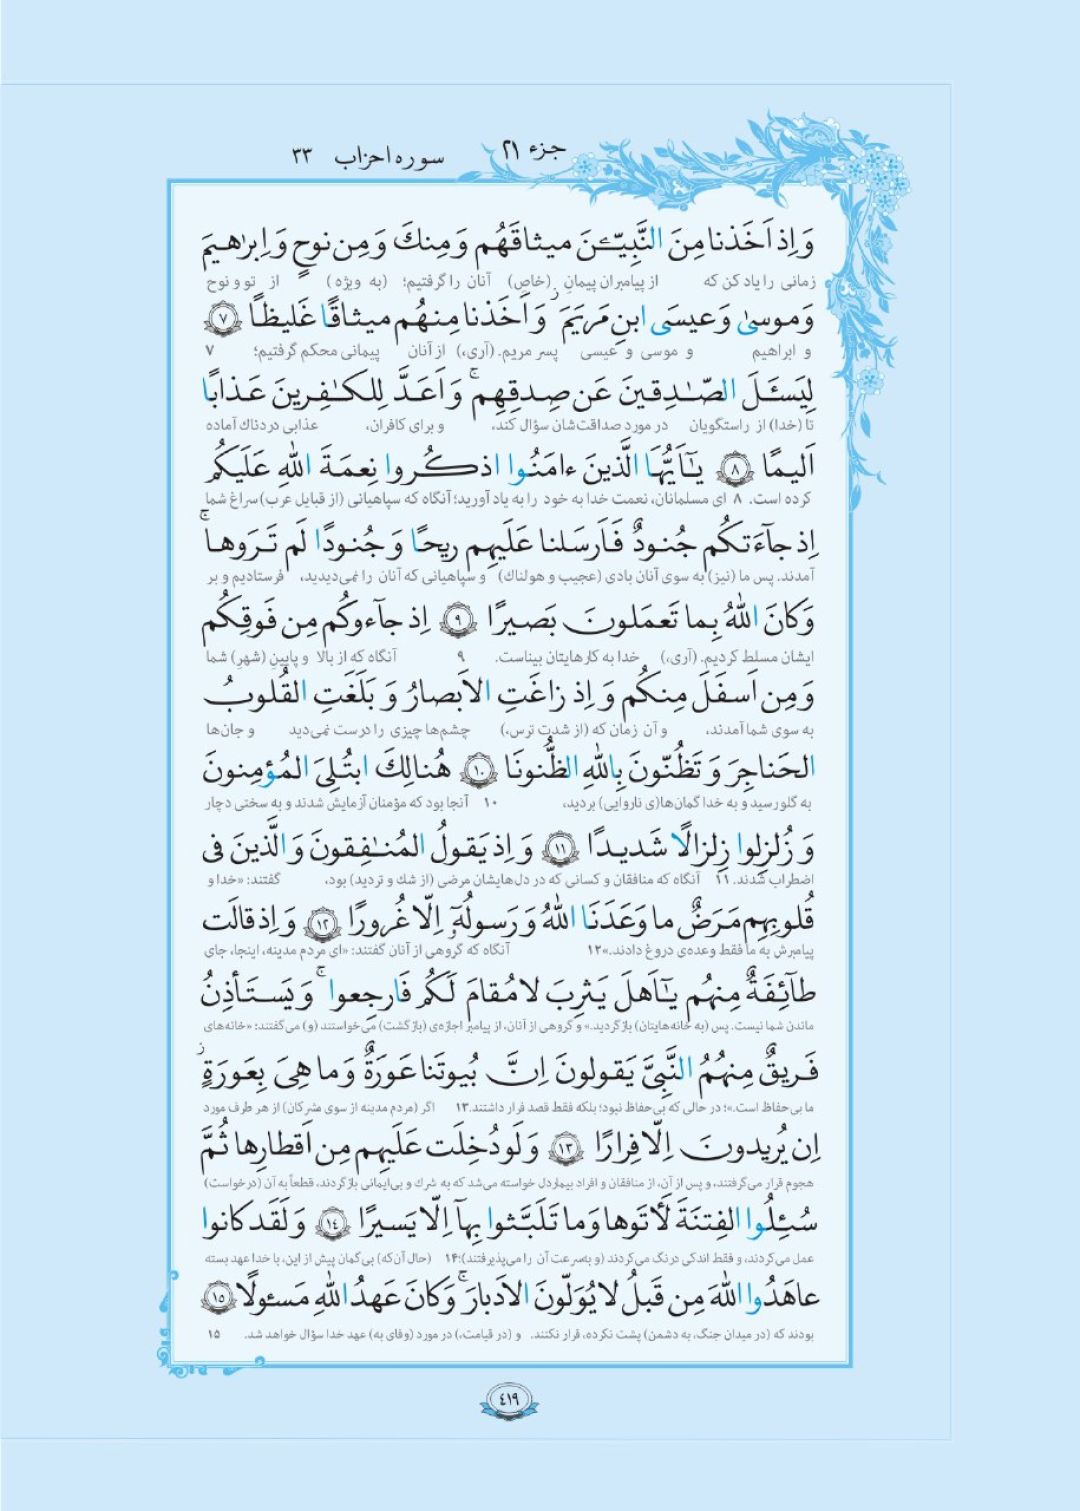 جزء ٢١
سوره احزاب ٣٣
وَ اِذ اَخَذنا مِنَ النَّبِيّـۧنَ ميثاقَهُم وَ مِنكَ وَ مِن نوحٍ وَ اِبرٰهيمَ
زمانی را یاد کن که از پیامبران پیمانِ (خاص) آنان را گرفتیم؛ (به ویژه) از تو و نوح
وَ موسىٰ وَ عيسَى ابنِ مَريَمَ ۖ وَ اَخَذنا مِنهُم ميثاقًا غَليظًا ٧
و ابراهیم و موسی و عیسی پسر مریم. (آری،) از آنان پیمانی محکم گرفتیم؛ ٧
لِيَسـَٔلَ الصّـٰدِقينَ عَن صِدقِهِم ۚ وَ اَعَدَّ لِلكـٰفِرينَ عَذابًا
تا (خدا) از راستگویان در مورد صداقت‌شان سؤال کند، و برای کافران، عذابی دردناک آماده
اَليمًا ٨ يـٰٓاَيُّهَا الَّذينَ ءامَنُوا اذكُروا نِعمَةَ اللهِ عَلَيكُم
کرده است. ٨ ای مسلمانان، نعمت خدا به خود را به یاد آورید؛ آنگاه که سپاهیانی (از قبایل عرب) سراغ شما
اِذ جآءَتكُم جُنودٌ فَاَرسَلنا عَلَيهِم ريحًا وَ جُنودًا لَم تَرَوها ۚ
آمدند. پس ما (نیز) به سوی آنان بادی (عجیب و هولناک) و سپاهیانی که آنان را نمی‌دیدید، فرستادیم و بر
وَ كانَ اللهُ بِما تَعمَلونَ بَصيرًا ٩ اِذ جآءوكُم مِن فَوقِكُم
ایشان مسلط کردیم. (آری،) خدا به کارهایتان بیناست. ٩ آنگاه که از بالا و پایینِ (شهرِ) شما
وَ مِن اَسفَلَ مِنكُم وَ اِذ زاغَتِ الاَبصارُ وَ بَلَغَتِ القُلوبُ
به سوی شما آمدند، و آن زمان که (از شدت ترس،) چشم‌ها چیزی را درست نمی‌دید و جان‌ها
الحَناجِرَ وَ تَظُنّونَ بِاللهِ الظُّنونَا ١٠ هُنالِكَ ابتُلِىَ المُؤمِنونَ
به گلو رسید و به خدا گمان‌ها(ی ناروایی) بردید، ١٠ آنجا بود که مؤمنان آزمایش شدند و به سختی دچار
وَ زُلزِلوا زِلزالًا شَديدًا ١١ وَ اِذ يَقولُ المُنـٰفِقونَ وَ الَّذينَ فى
اضطراب شدند. ١١ آنگاه که منافقان و کسانی که در دل‌هایشان مرضی (از شک و تردید) بود، گفتند: «خدا و
قُلوبِهِم مَرَضٌ ما وَعَدَنَا اللهُ وَ رَسولُهُٓ اِلّا غُرورًا ١٢ وَ اِذ قالَت
پیامبرش به ما فقط وعده‌ی دروغ دادند.» ١٢ آنگاه که گروهی از آنان گفتند: «ای مردم مدینه، اینجا، جای
طآئِفَةٌ مِنهُم يـٰٓاَهلَ يَثرِبَ لا مُقامَ لَكُم فَارجِعوا ۚ وَ يَستَأذِنُ
ماندن شما نیست. پس (به خانه‌هایتان) بازگردید.» و گروهی از آنان، از پیامبر اجازه‌ی (بازگشت) می‌خواستند (و) می‌گفتند: «خانه‌های
فَريقٌ مِنهُمُ النَّبِىَّ يَقولونَ اِنَّ بُيوتَنا عَورَةٌ وَ ما هِىَ بِعَورَةٍ ۖ
ما بی‌حفاظ است.»؛ در حالی که بی‌حفاظ نبود؛ بلکه فقط قصد فرار داشتند. ١٣ اگر (مردم مدینه از سوی مشرکان) از هر طرف مورد
اِن يُريدونَ اِلّا فِرارًا ١٣ وَ لَو دُخِلَت عَلَيهِم مِن اَقطارِها ثُمَّ
هجوم قرار می‌گرفتند، و پس از آن، از منافقان و افراد بیماردل خواسته می‌شد که به شرک و بی‌ایمانی بازگردند، قطعاً به آن (درخواست)
سُئِلُوا الفِتنَةَ لَـٔاتَوها وَ ما تَلَبَّثوا بِهآ اِلّا يَسيرًا ١٤ وَ لَقَد كانوا
عمل می‌کردند، و فقط اندکی درنگ می‌کردند (و به‌سرعت آن را می‌پذیرفتند)؛ ١۴ (حال آن‌که) بی‌گمان پیش از این، با خدا عهد بسته
عاهَدُوا اللهَ مِن قَبلُ لا يُوَلّونَ الاَدبارَ ۚ وَ كانَ عَهدُ اللهِ مَسئولًا ١٥
بودند که (در میدان جنگ، به دشمن) پشت نکرده، فرار نکنند. و (در قیامت،) در مورد (وفای به) عهد خدا سؤال خواهد شد. ١۵
٤١٩